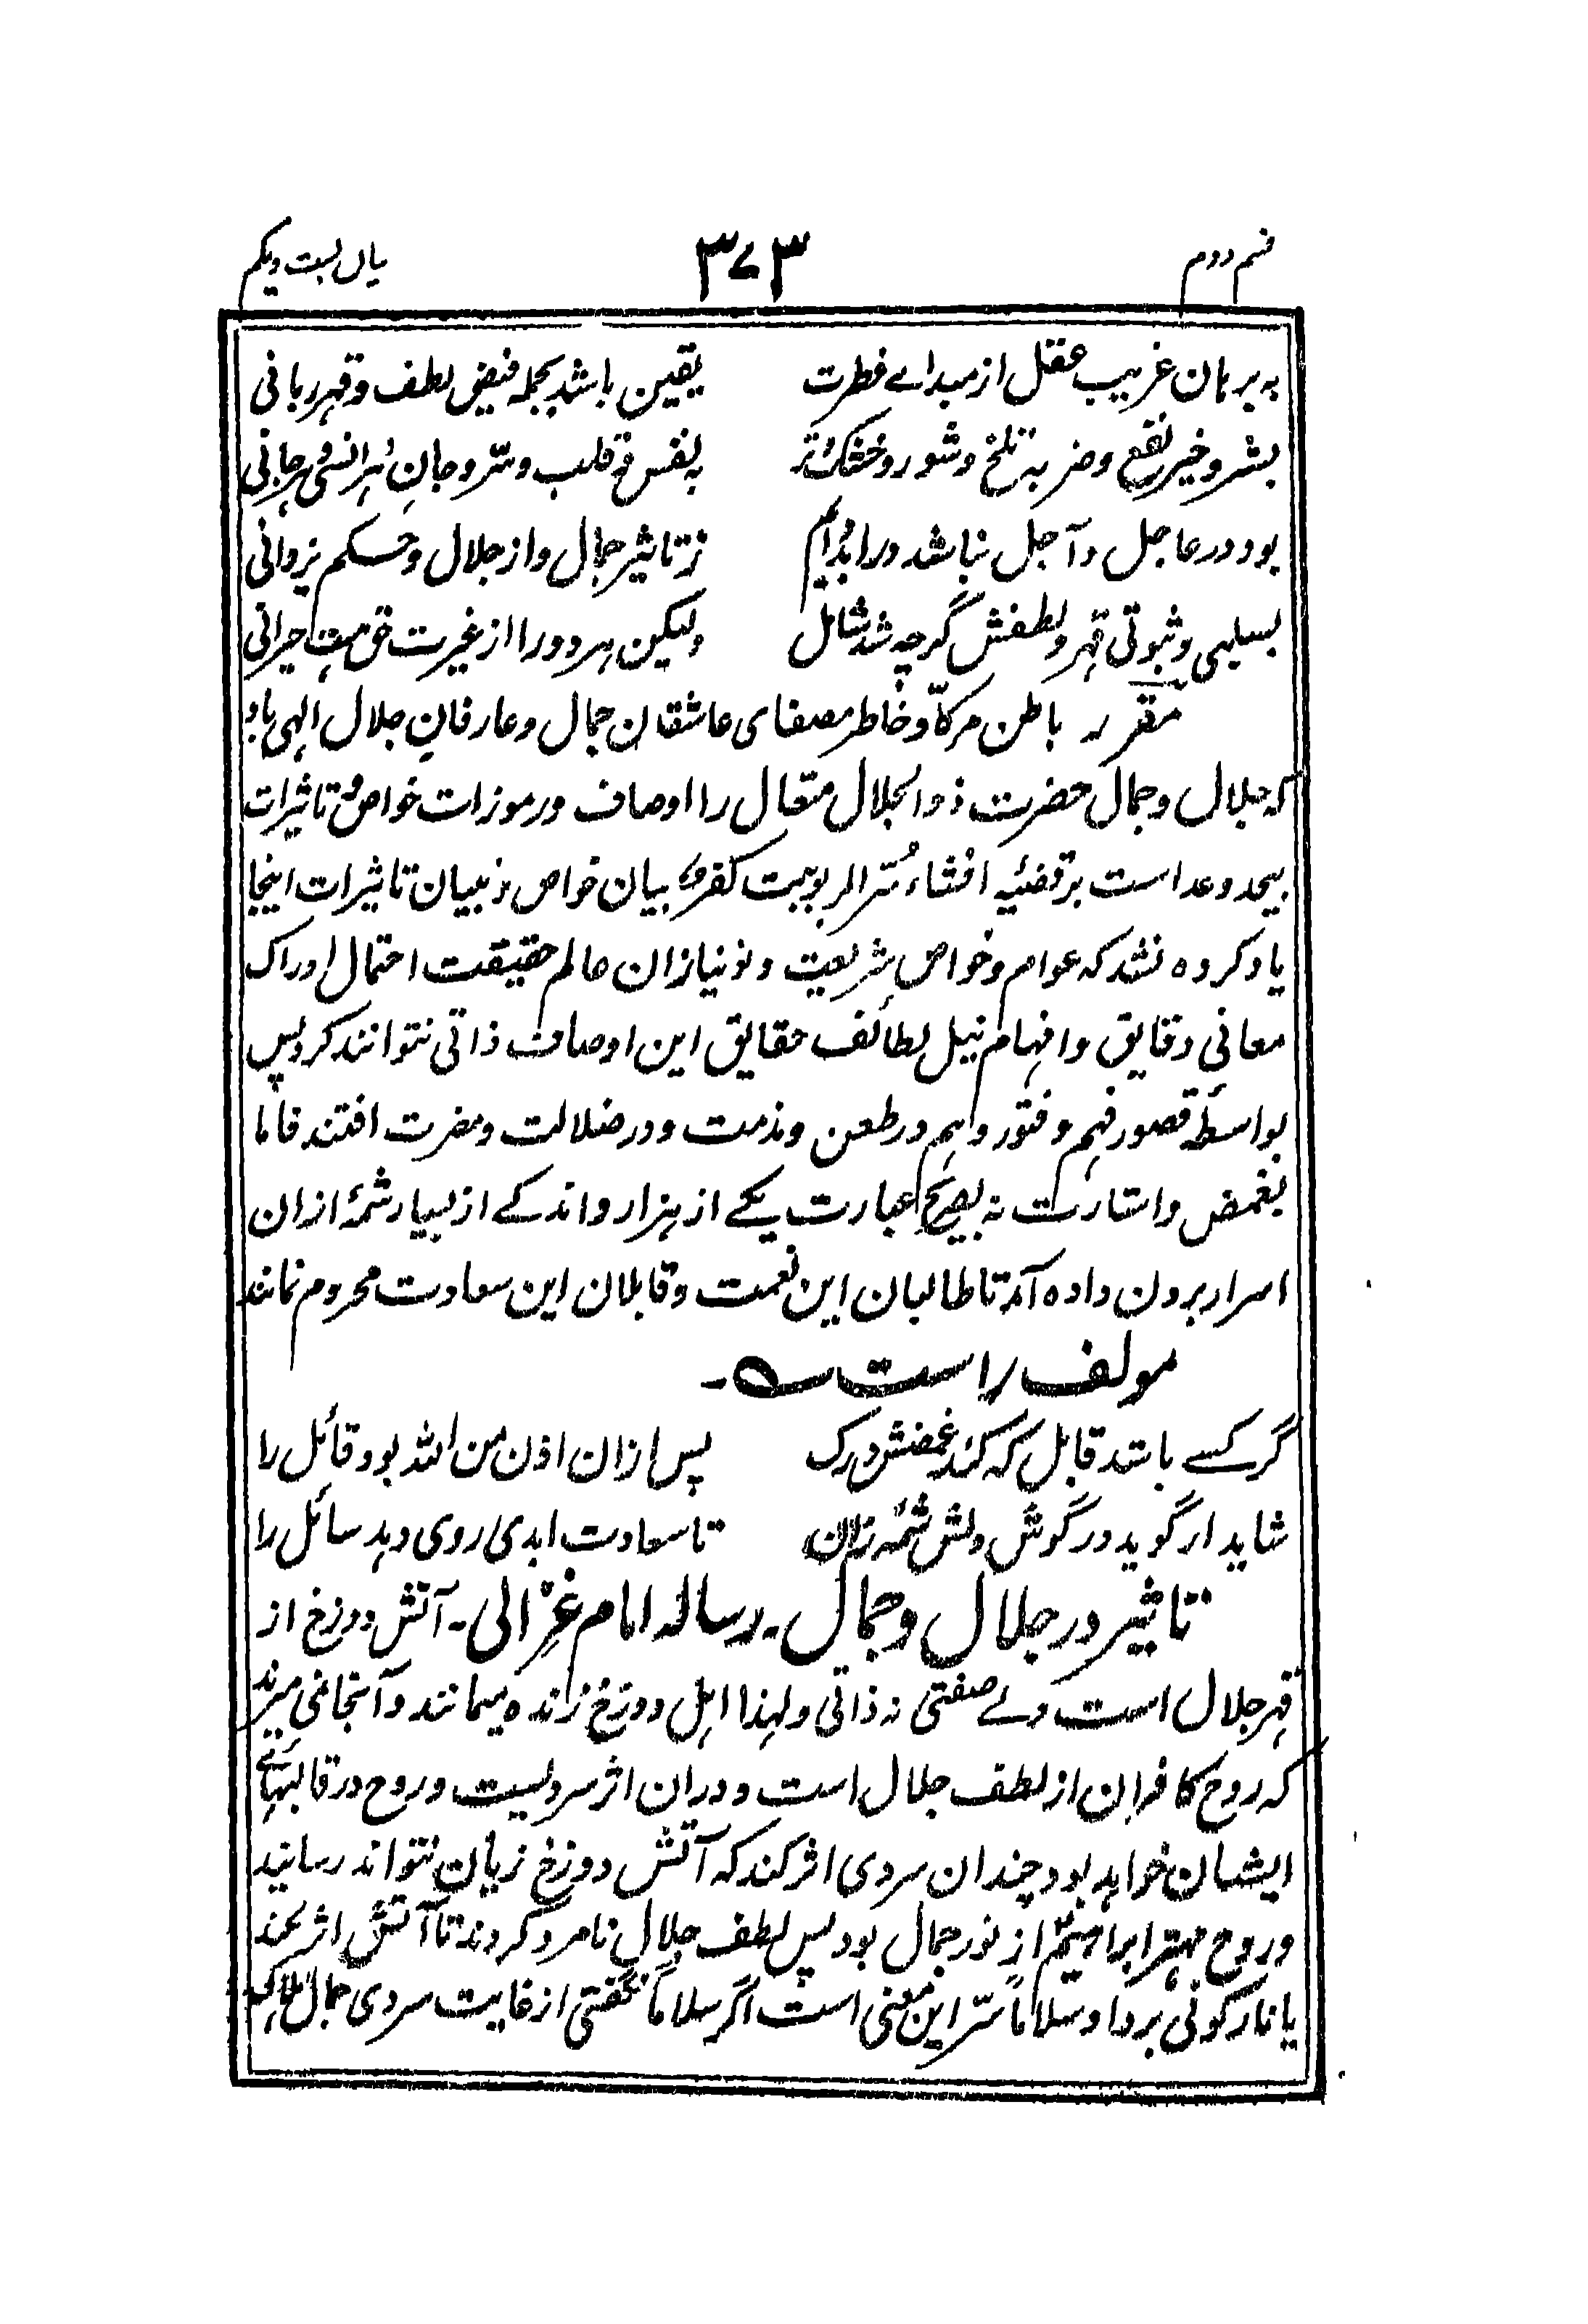 قسم دوم ۳۷۳ بیان بست ویکم
به برہان غریب عقل از مبداے فطرت یقین باشد بجملہ فیض لطف و قہر ربانی
بشر و خیر نفع و ضر بہ تلخ و شور و خشک و تر بہ نفس و قلب و سر و جانِ ہر انسی و ہر جانی
بود در عاجل و آجل نباشد در ابد دایم ز تاثیر جمال و از جلال و حکم یزدانی
بسلبی و ثبوتی قہر و لطفش گرچہ شد شامل ولیکن ہر دو را از غیرت حق ہست حیرانی
مقرر باطن مزکّا و خاطر مصفای عاشقان جمال و عارفان جلال الہی باد
کہ جلال و جمال حضرت ذوالجلال متعال را اوصاف و رموزات خواص و تاثیرات
بیحد و عد است بر قضیّہ افشاء سُرّ الربوبیت کفر بیان خواص و تبیان تاثیرات اینجا
یاد کردہ نشد کہ عوام و خواص شریعت و نو نیازان عالم حقیقت احتمال ادراک
معانی دقایق و افہام نیل لطائف حقایق این اوصاف ذاتی نتوانند کرد پس
بواسطۂ قصور فہم و فتور وہم در طعن و مذمت و در ضلالت و مضرت افتند فاما
بغمض و اشارت نہ بصریح عبارت یکے از ہزار و اندکے از بسیار شمۂ ازان
اسرار برون دادہ آمد تا طالبان این نعمت و قابلان این سعادت محروم نمانند
مولف راست ؎ ۔
گر کسے باشد قابل کہ کند غمضش درک پس ازان اذن من اللہ بود قائل را
شاید ار گوید در گوش دلش شمّۂ زان تا سعادت ابدی روی دہد سائل را
تاثیر در جلال و جمال ۔ رسالہ امام غزّالی ۔ آتش دوزخ از
قہر جلال است ولے صفتی نہ ذاتی و لہذا اہل دوزخ زندہ میمانند و آنجا نمی میرند
کہ روح کافران از لطف جلال است و دران اثر سردیست و روح در قالبہائے
ایشان خواہد بود چندان سردی اثر کند کہ آتش دوزخ زیان نتواند رسانید
و روح مہتر ابراہیمؑ از نور جمال بود پس لطف جلال نامزد کردند تا آتش اثر نکند
یا نار کونی بردا و سلاماً سرّ این معنی است اگر سلاماً نگفتی از غایت سردی جمال